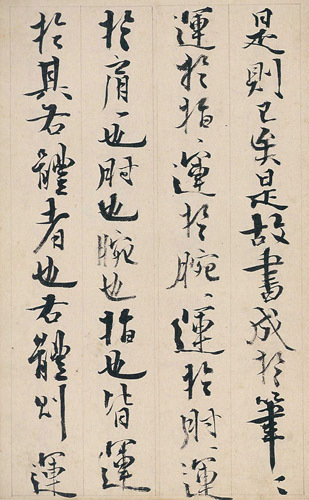 是則已矣是故書成於筆〻
運於指〻運於腕〻運於肘〻運
於肩〻也肘也腕也指也皆運
於其右體者也右體則運